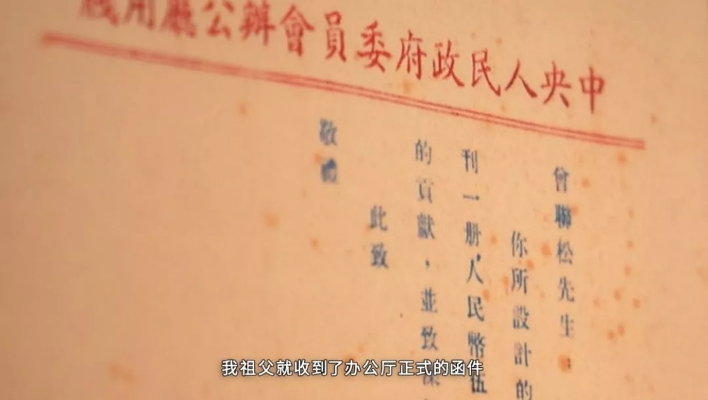 中央人民政府委員會辦公廳用箋
曾聯松先生：
你所設計的
刊一册,人民幣伍
的貢獻，並致
此致
敬禮
我祖父就收到了办公厅正式的函件